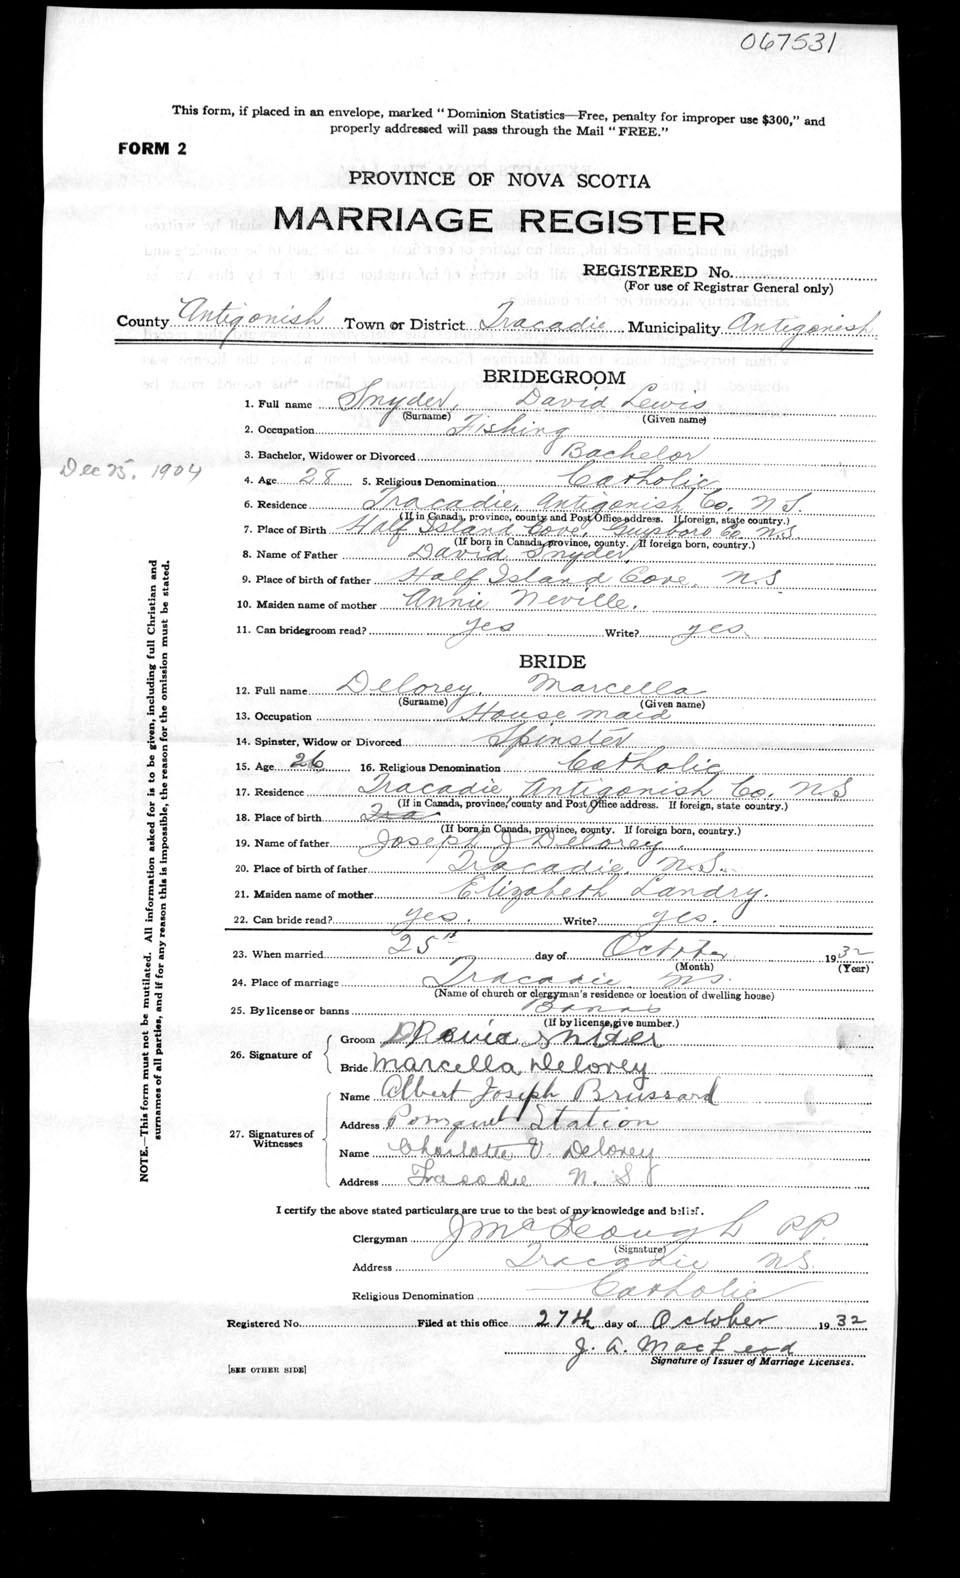 067531
This form, if placed in an envelope, marked "Dominion Statistics—Free, penalty for improper use $300," and
properly addressed will pass through the Mail "FREE."
FORM 2
PROVINCE OF NOVA SCOTIA
MARRIAGE REGISTER
REGISTERED No.
(For use of Registrar General only)
County Antigonish Town or District Tracadie Municipality Antigonish
BRIDEGROOM
1. Full name Snyder, David Lewis
(Surname) (Given name)
2. Occupation Fishing
3. Bachelor, Widower or Divorced Bachelor
Dec 25, 1904
4. Age 28 5. Religious Denomination Catholic
6. Residence Tracadie, Antigonish Co. N.S.
(If in Canada, province, county and Post Office address. If foreign, state country.)
7. Place of Birth Half Island Cove, Guysboro Co N.S.
(If born in Canada, province, county. If foreign born, country.)
8. Name of Father David Snyder
9. Place of birth of father Half Island Cove. N.S
10. Maiden name of mother Annie Neville.
11. Can bridegroom read? yes Write? yes.
BRIDE
12. Full name Delorey, Marcella
(Surname) (Given name)
13. Occupation House maid
14. Spinster, Widow or Divorced Spinster
15. Age 26 16. Religious Denomination Catholic
17. Residence Tracadie Antigonish Co. N.S
(If in Canada, province, county and Post Office address. If foreign, state country.)
18. Place of birth Tra
(If born in Canada, province, county. If foreign born, country.)
19. Name of father Joseph J Delorey.
20. Place of birth of father Tracadie, N.S.
21. Maiden name of mother Elizabeth Landry.
22. Can bride read? yes. Write? yes.
23. When married 25th day of October 1932
(Month) (Year)
24. Place of marriage Tracadie NS.
(Name of church or clergyman's residence or location of dwelling house)
25. By license or banns Banns
(If by license, give number.)
26. Signature of
Groom David Snider
Bride Marcella Delorey
27. Signatures of Witnesses
Name Albert Joseph Brussard
Address Pomquet Station
Name Charlotte V. Delorey
Address Tracadie N. S
I certify the above stated particulars are true to the best of my knowledge and belief.
Clergyman J McKeough P.P.
(Signature)
Address Tracadie NS.
Religious Denomination Catholic
Registered No. Filed at this office 27th day of October 1932
J. A. MacLeod
Signature of Issuer of Marriage Licenses.
[SEE OTHER SIDE]
NOTE.—This form must not be mutilated. All information asked for is to be given, including full Christian and
surnames of all parties, and if for any reason this is impossible, the reason for the omission must be stated.